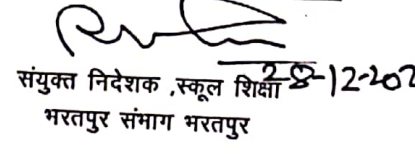 संयुक्त निदेशक ,स्कूल शिक्षा 28-12-202
भरतपुर संभाग भरतपुर